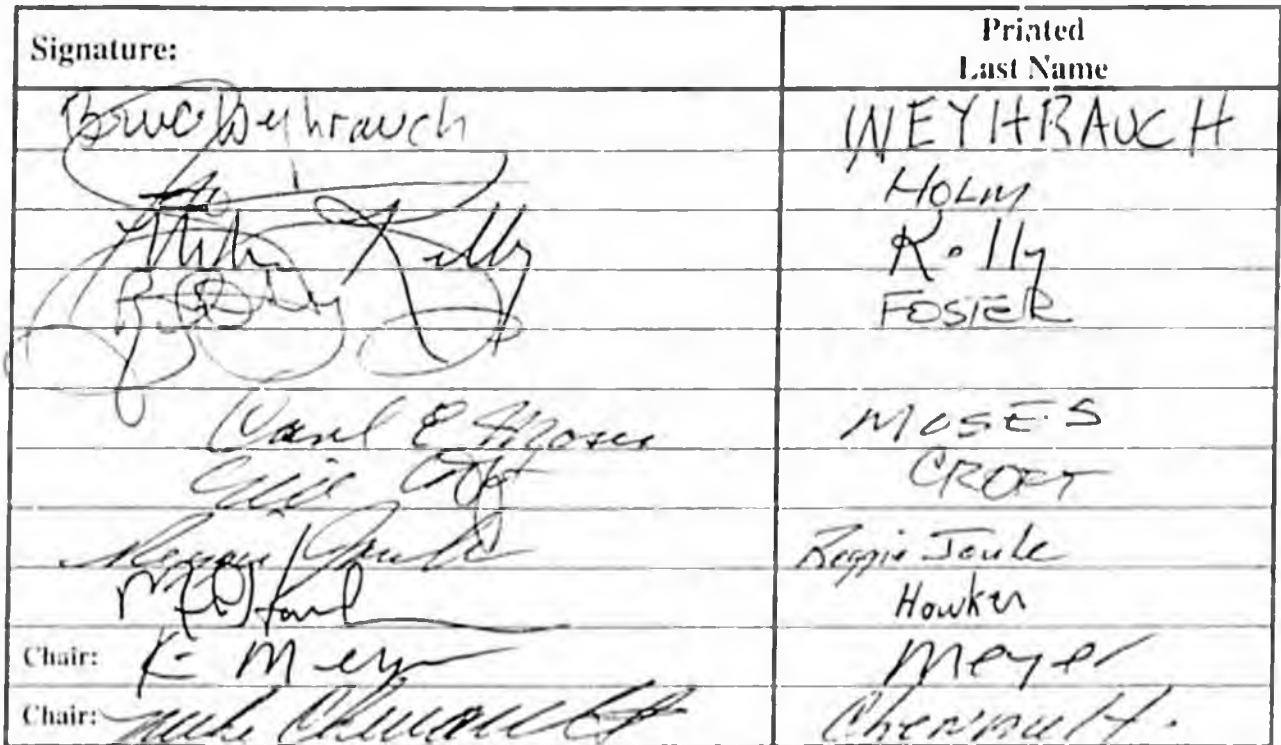 Signature: Printed Last Name
Bruce Weyhrauch WEYHRAUCH
HOLM
Mike Kelly Kelly
FOSTER
Carl E Moses MOSES
Eric Croft CROFT
Reggie Joule Reggie Joule
Hawker
Chair: K Meyer Meyer
Chair: Mike Chenault Chenault.